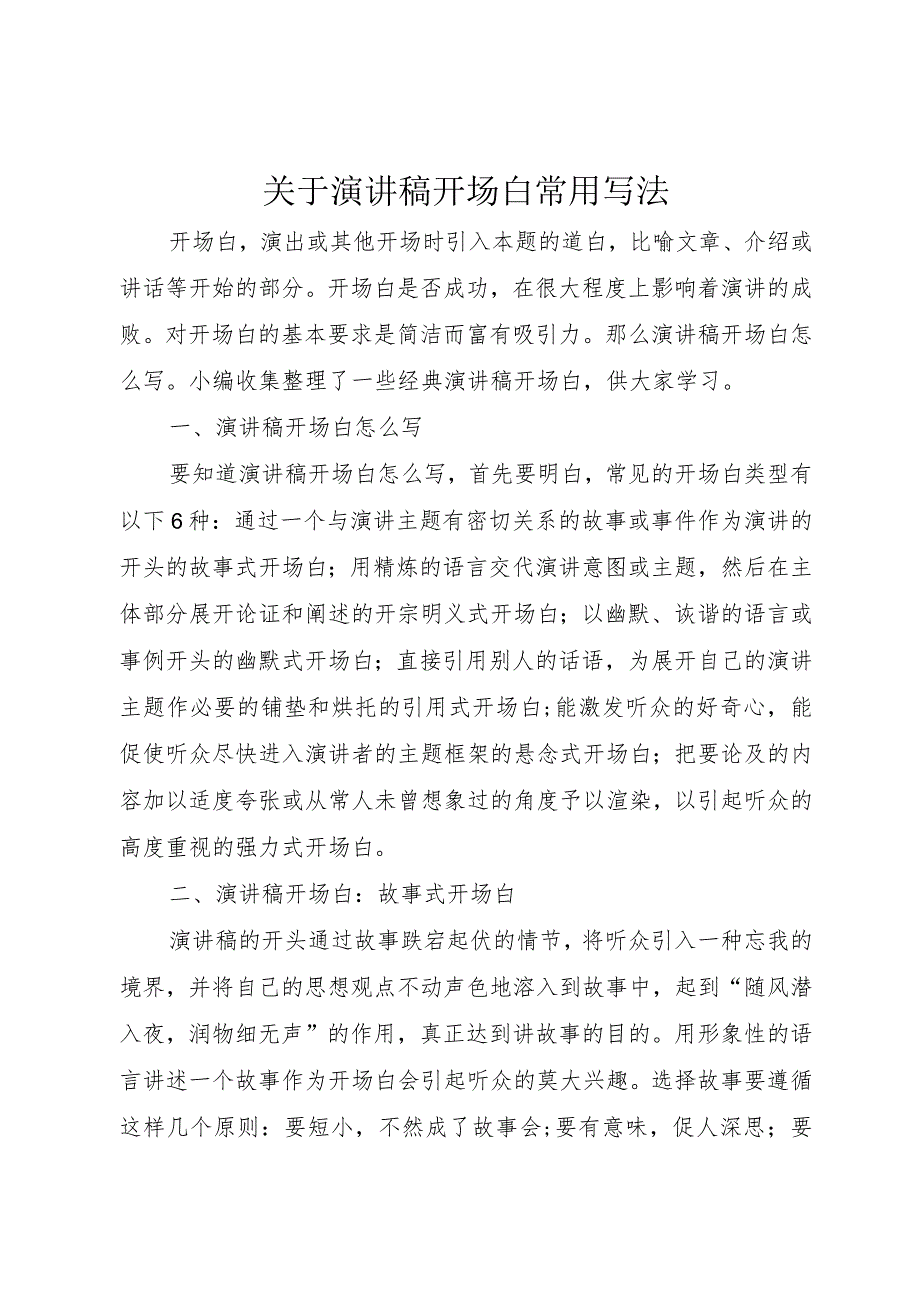 关于演讲稿开场白常用写法
开场白，演出或其他开场时引入本题的道白，比喻文章、介绍或
讲话等开始的部分。开场白是否成功，在很大程度上影响着演讲的成
败。对开场白的基本要求是简洁而富有吸引力。那么演讲稿开场白怎
么写。小编收集整理了一些经典演讲稿开场白，供大家学习。
一、演讲稿开场白怎么写
要知道演讲稿开场白怎么写，首先要明白，常见的开场白类型有
以下6种：通过一个与演讲主题有密切关系的故事或事件作为演讲的
开头的故事式开场白；用精炼的语言交代演讲意图或主题，然后在主
体部分展开论证和阐述的开宗明义式开场白；以幽默、诙谐的语言或
事例开头的幽默式开场白；直接引用别人的话语，为展开自己的演讲
主题作必要的铺垫和烘托的引用式开场白;能激发听众的好奇心，能
促使听众尽快进入演讲者的主题框架的悬念式开场白；把要论及的内
容加以适度夸张或从常人未曾想象过的角度予以渲染，以引起听众的
高度重视的强力式开场白。
二、演讲稿开场白：故事式开场白
演讲稿的开头通过故事跌宕起伏的情节，将听众引入一种忘我的
境界，并将自己的思想观点不动声色地溶入到故事中，起到“随风潜
入夜，润物细无声”的作用，真正达到讲故事的目的。用形象性的语
言讲述一个故事作为开场白会引起听众的莫大兴趣。选择故事要遵循
这样几个原则：要短小，不然成了故事会;要有意味，促人深思；要